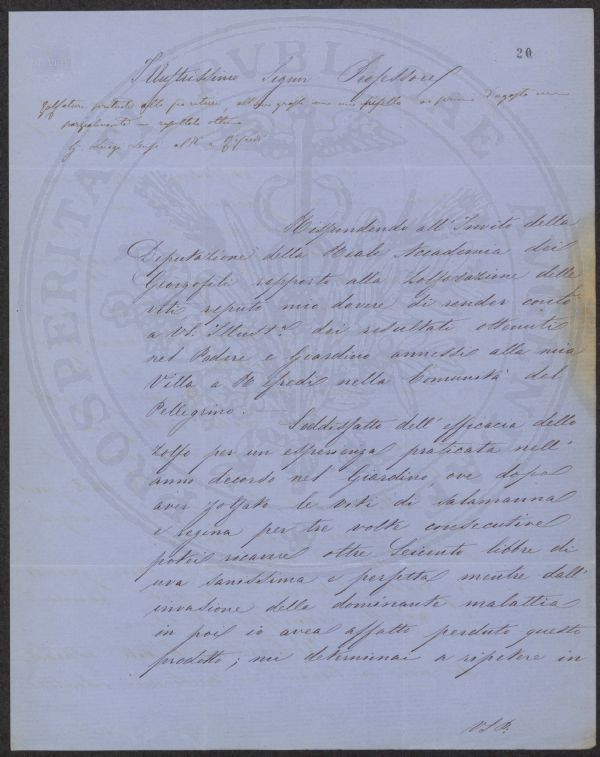 20
Illustrissimo Signor Professore
Zolfature
parzialmente — risultato ottimo
Rispondendo all'Invito della
Deputazione della Reale Accademia dei
Georgofili rapporto alla Zolforazione delle
viti reputo mio dovere di render conto
a VS. Illust.ma dei resultati ottenuti
nel Podere e Giardino annessi alla mia
Villa a Rifredi nella Comunità del
Pellegrino.
Soddisfatto dell'efficacia dello
Zolfo per un esperienza praticata nell'
anno decorso nel Giardino, ove dopo
aver zolfato le viti di Salamanna
e regina per tre volte consecutive
potei ricavare oltre Seicento libbre di
uva sanissima e perfetta mentre dall'
invasione della dominante malattia
in poi io avea affatto perduto questo
prodotto; mi determinai a ripetere in
PROSPERITATI PUBLICAE AUGENDAE